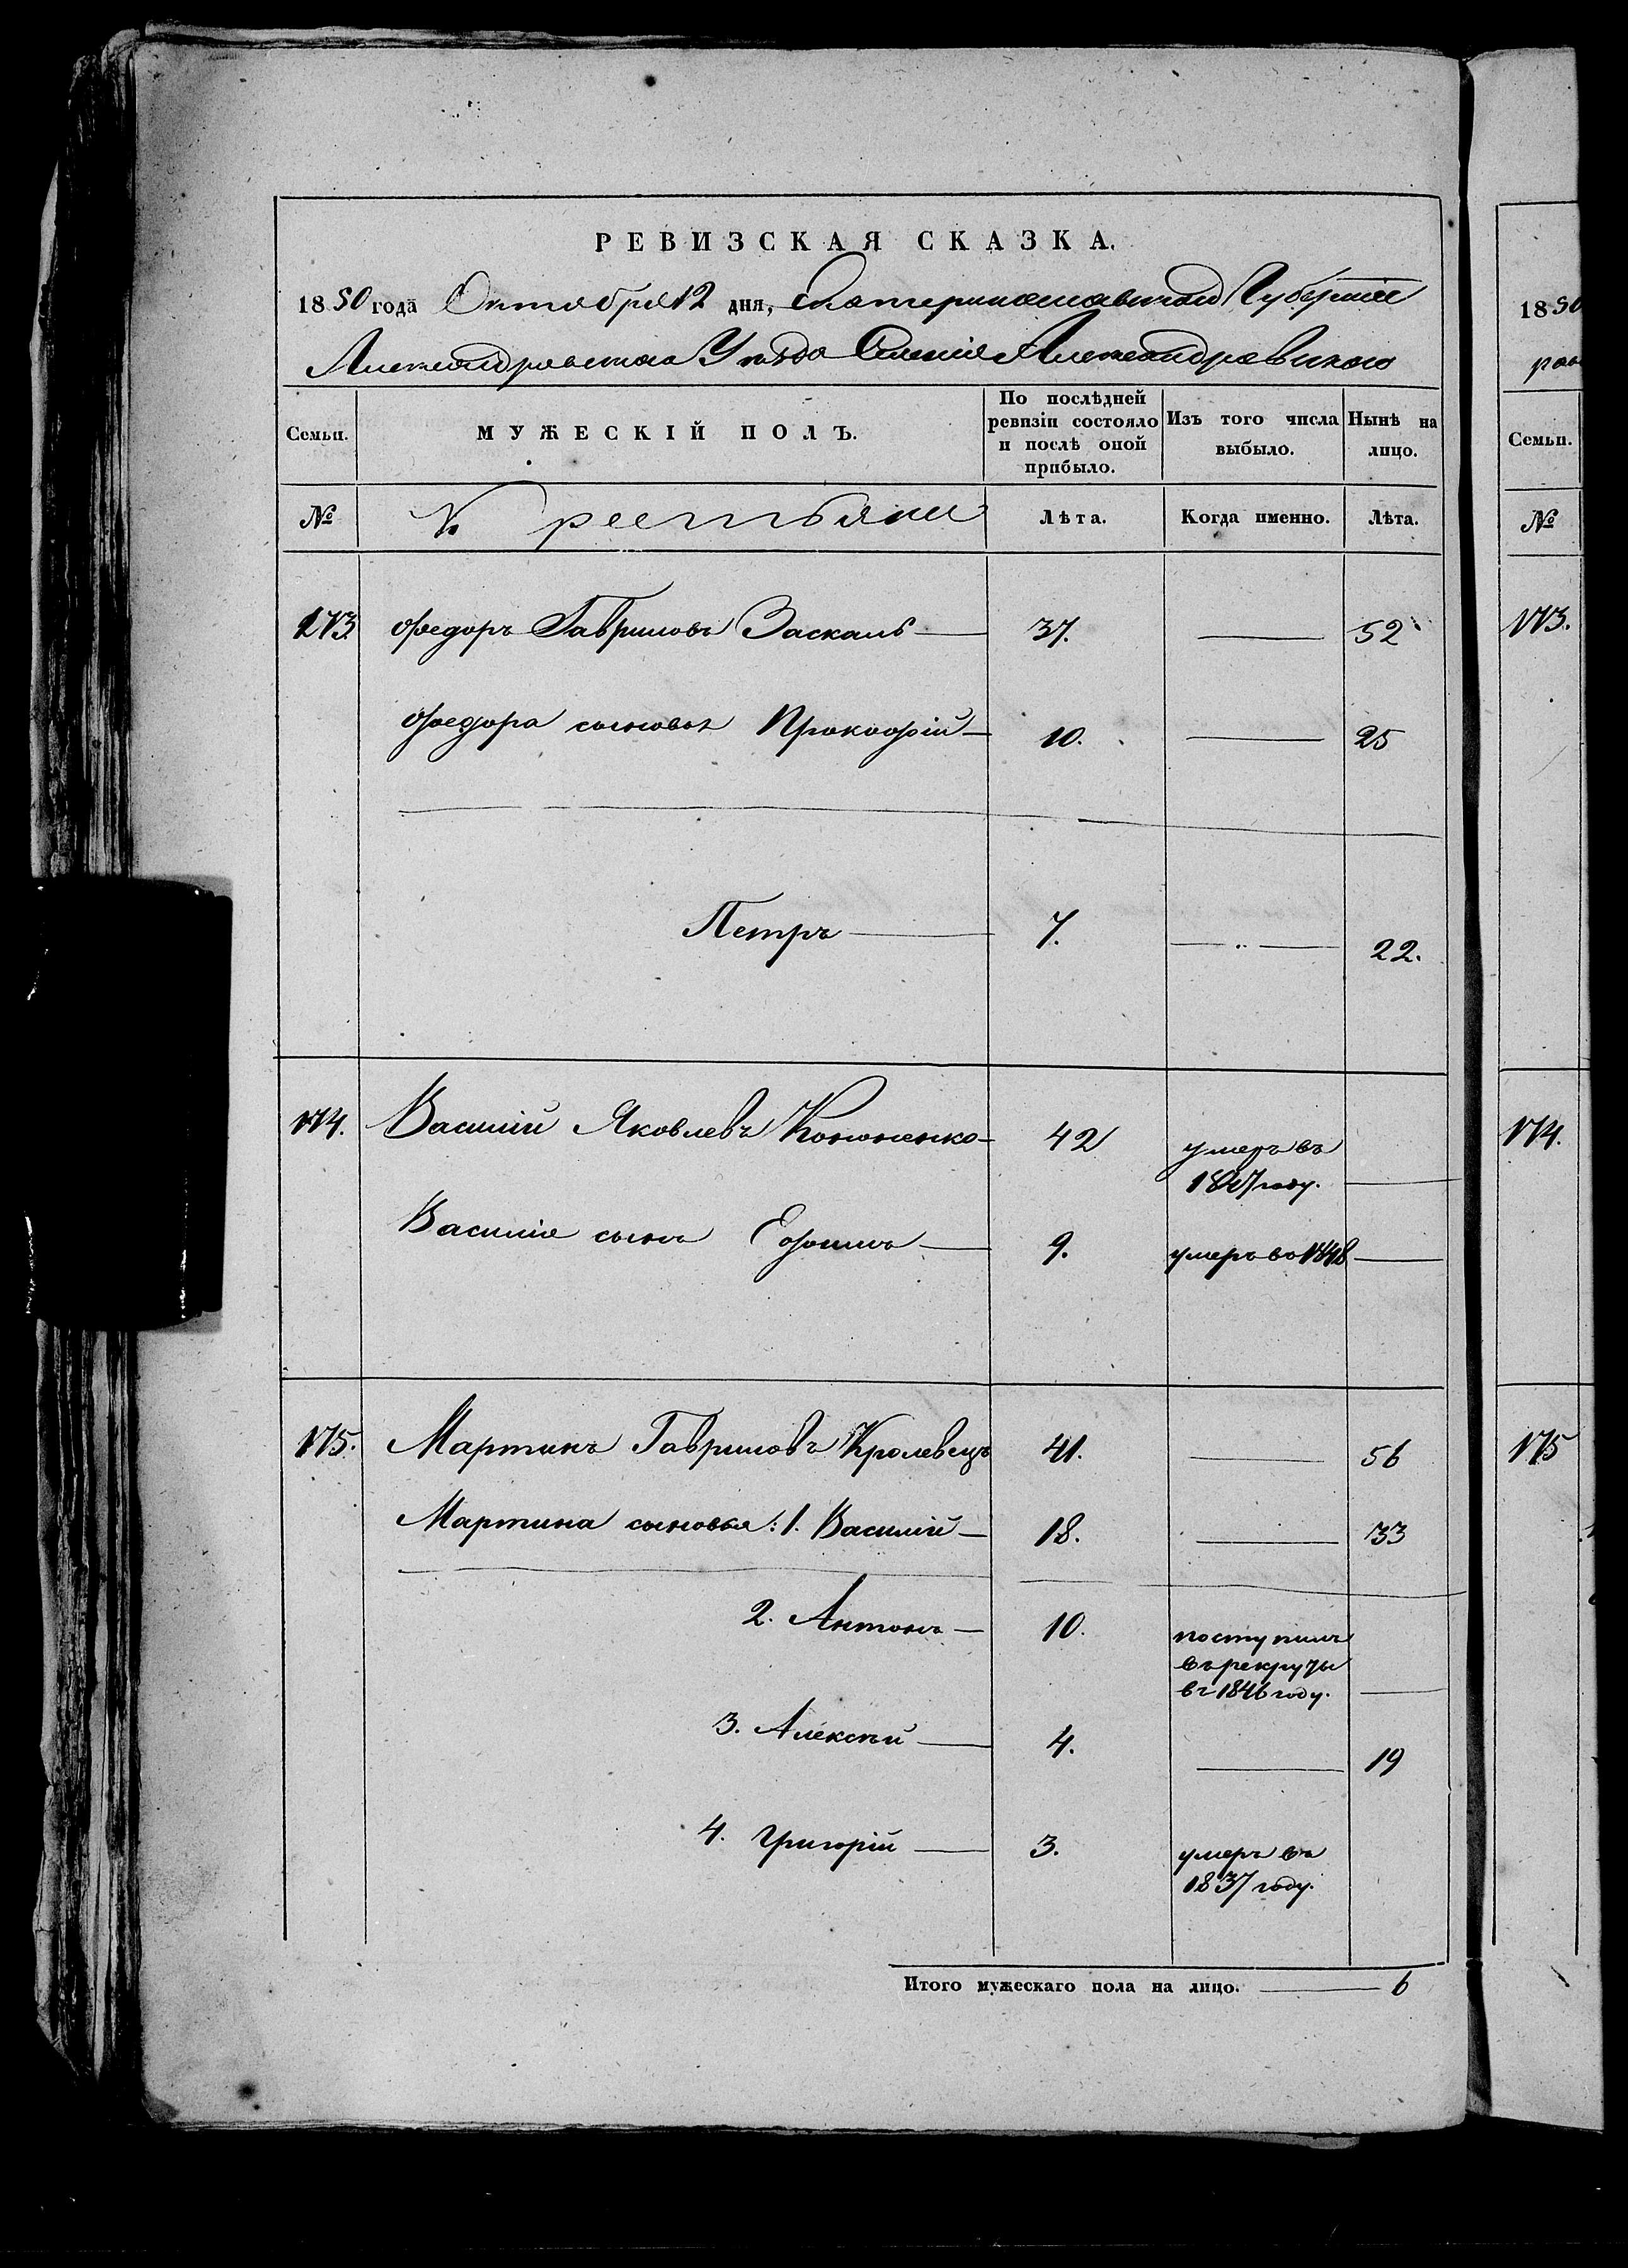 РЕВИЗСКАЯ СКАЗКА.
1850 года Октября 12 дня, Екатеринославской Губернии
Александровскаго Уезда Селенія Александровскаго
Семьи. МУЖЕСКІЙ ПОЛЪ. По послѣдней ревизіи состояло и послѣ оной прибыло. Изъ того числа выбыло. Нынѣ на лицо.
№ Крестьяне Лѣта. Когда именно. Лѣта.
173 Федоръ Гавриловъ Заскаль 37. 52
Федора сыновья Прокофій 10. 25
Петръ 7. 22.
174. Василій Яковлевъ Кононенко 42 умеръ въ
году.
Василія сынъ Ефимъ 9. умеръ въ 1848
175. Мартинъ Гавриловъ Кролевецъ 41. 56
Мартина сыновья: 1. Василій 18. 33
2. Антонъ 10. поступилъ
въ рекруты
въ 1846 году.
3. Алексѣй 4. 19
4. Григорій 3. умеръ въ
1837 году.
Итого мужескаго пола на лицо. 6
1850
Семьи.
№
173.
174.
175